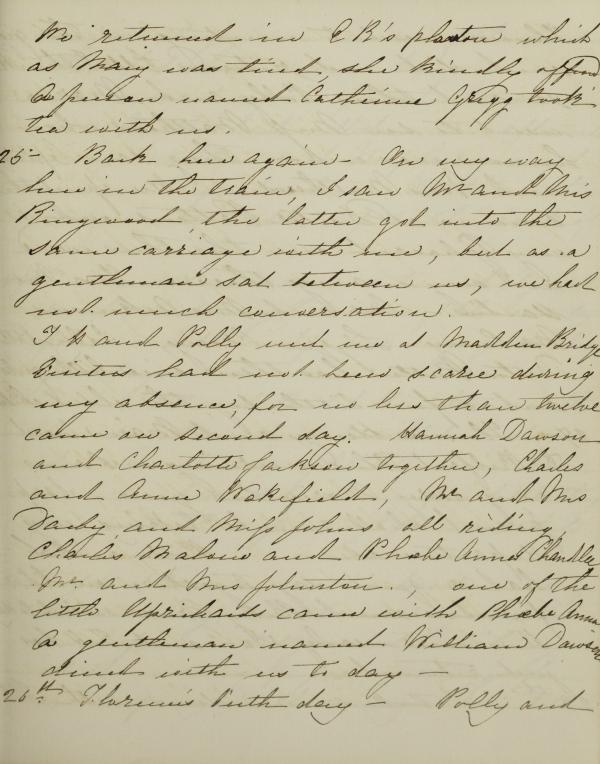 We returned in E R's phaeton which
as Mary was tired, she kindly offered
A person named Catherine Grigg took
tea with us.
25- Back here again - On my way
here in the train, I saw Mr and Mrs
Ringwood, the latter got into the
same carriage with me, but as a
gentleman sat between us, we had
not much conversation.
and Polly met me at Madden Bridge
Visitors had not been scarce during
my absence, for no less than twelve
came on second day. Hannah Dawson
and Charlotte Jackson together, Charles
and Anne Wakefield, Mr and Mrs
Darby and Miss Johns all riding,
Charles Malone and Phebe Anna Chandlee
Mr. and Mrs Johnston., one of the
little Uprichards came with Phebe Anna
A gentleman named William Dawson
dined with us to day -
26th Florence's birth day - Polly and